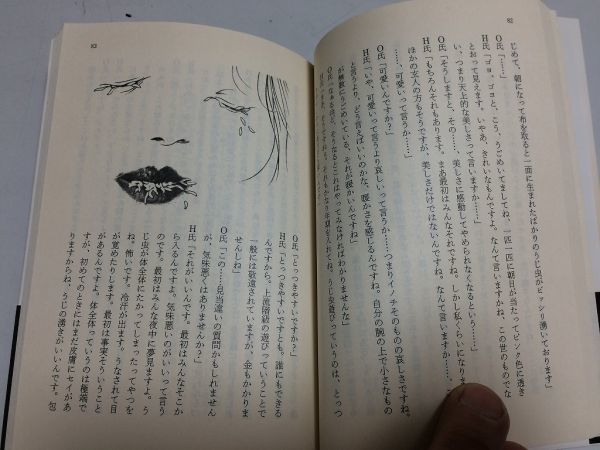 82
じめて、朝になって布を取ると一面に生まれたばかりのうじ虫がビッシリ湧いております」
O氏「……」
H氏「ゴヨ、ゴヨと、こう、うごめいてましてね、一匹一匹に朝日が当たってピンク色に透き
とおって見えます。いやあ、きれいなもんですよ。なんて言いますかね、この世のものでな
い、つまり天上的な美しさって言いますか……」
O氏「そうしますと、その……、美しさに感動してやめられなくなるという……」
H氏「もちろんそれもあります。まあ最初はみんなそれですね。しかし私くらいになります
ほかの玄人の方もそうですが、美しさだけではないんですね。なんて言いますか……、
……、可愛いって言うか……」
O氏「可愛いんですか？」
H氏「いや、可愛いって言うより哀しいって言うか……つまりイノチそのものの哀しさですね。
と言うより、どう言えばいいのかな、暖かさを感じるんですね。自分の腕の上で小さなもの
が無数にうごめいている、それが暖かいんですね」
O氏「なある
83
O氏「とっつきやすいですか？」
H氏「とっつきやすいですとも。誰にもできる
んですから。上流階級の遊びっていうことで
一般には敬遠されていますが、金もかかりま
せんしね」
O氏「……、見当違いの質問かもしれません
が、気味悪くはありませんか？」
H氏「それがいいんです。最初はみんなそこか
ら入るんですよ。気味悪いのがいいって言う
のです。最初はみんな夜中に夢見ますよ。う
じ虫が体全体にたかってしまったってやつを
ね。怖いです。冷汗が出ます。うなされて目
が覚めたりします。最初は事実そういうこと
があるんですよ。体全体っていうのは極端で
すが、初めてのときにはまだ皮膚にセイがあ
りますからね、うじの湧きがいいんです。包